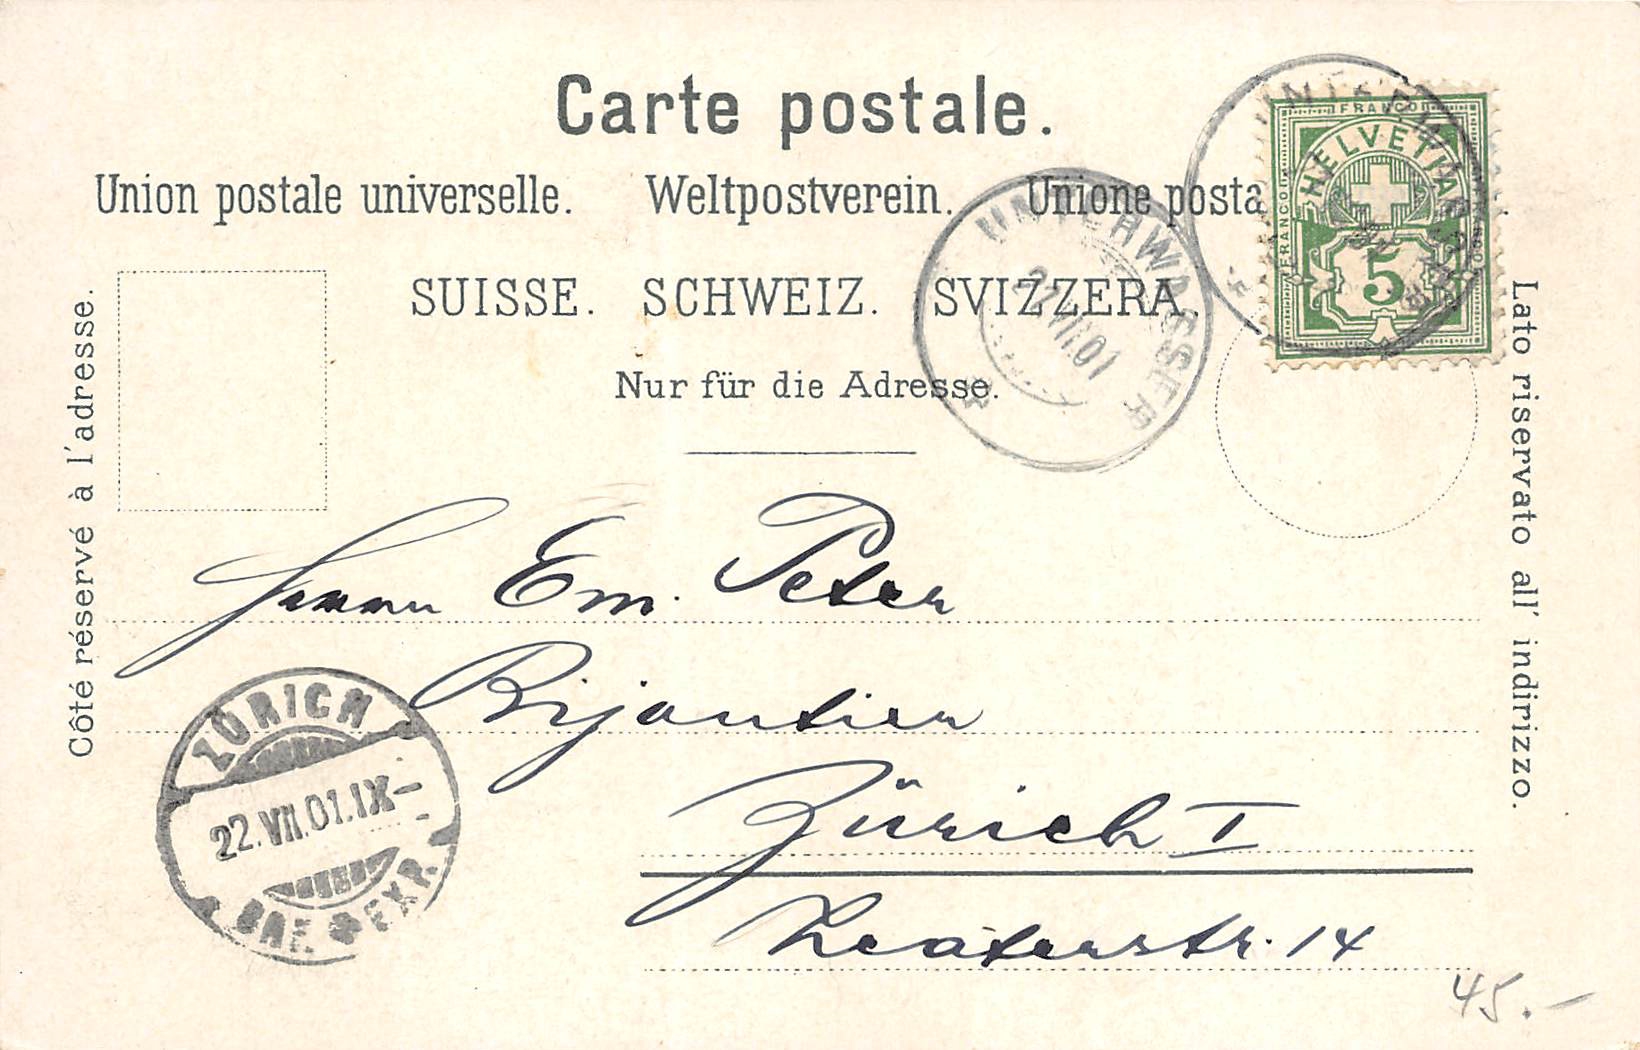 Carte postale.
Union postale universelle. Weltpostverein. Unione posta
SUISSE. SCHWEIZ. SVIZZERA.
Nur für die Adresse.
Côté réservé à l'adresse.
Lato riservato all' indirizzo.
FRANCO
FRANCO
HELVETIA
5
UNTERWASSER
UNTERWASSER
22 VII 01
Herrn Em. Peter
Bijoutier
Zürich I
Theaterstr. 14
ZÜRICH
22.VII.01.IX–
BRF. EXP.
45.–